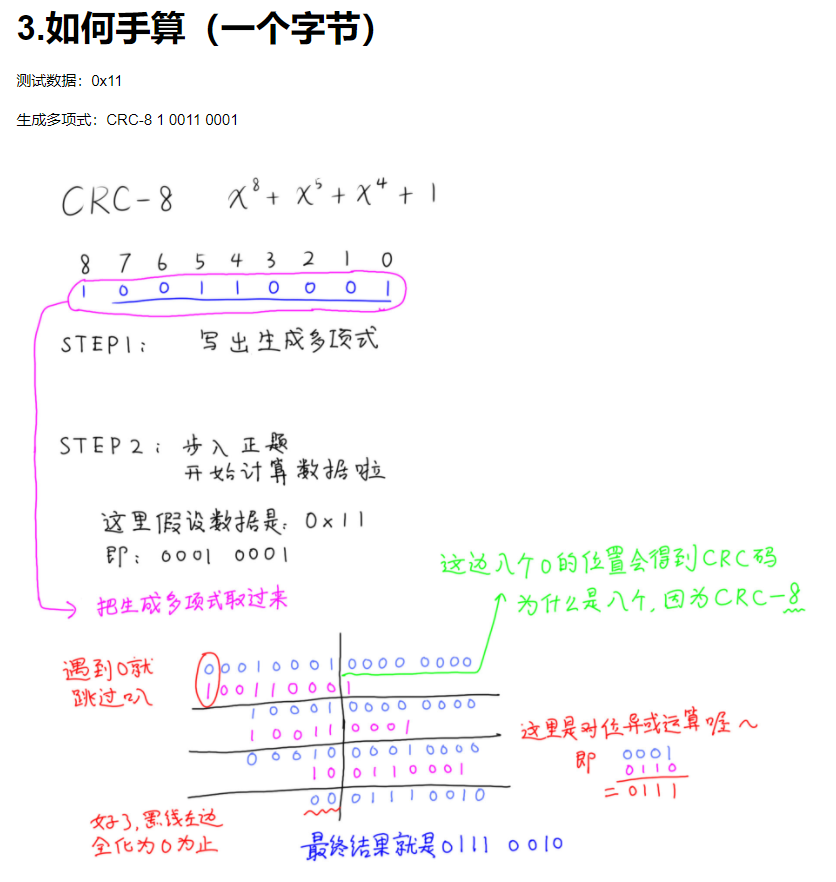 3.如何手算（一个字节）
测试数据：0x11
生成多项式：CRC-8 1 0011 0001
CRC-8 x⁸+x⁵+x⁴+1
8 7 6 5 4 3 2 1 0
1 0 0 1 1 0 0 0 1
STEP1: 写出生成多项式
STEP2: 步入正题
开始计算数据啦
这里假设数据是: 0x11
即: 0001 0001
这边八个0的位置会得到CRC码
把生成多项式取过来
为什么是八个,因为CRC-8
遇到0就
跳过呗
00010001 0000 0000
10011000 1
10001 0000 0000
10011 0001
00010 00010000
10 0110001
00 01110010
这里是对位异或运算喔~
即 0001
0110
=0111
好了,黑线左边
全化为0为止
最终结果就是0111 0010